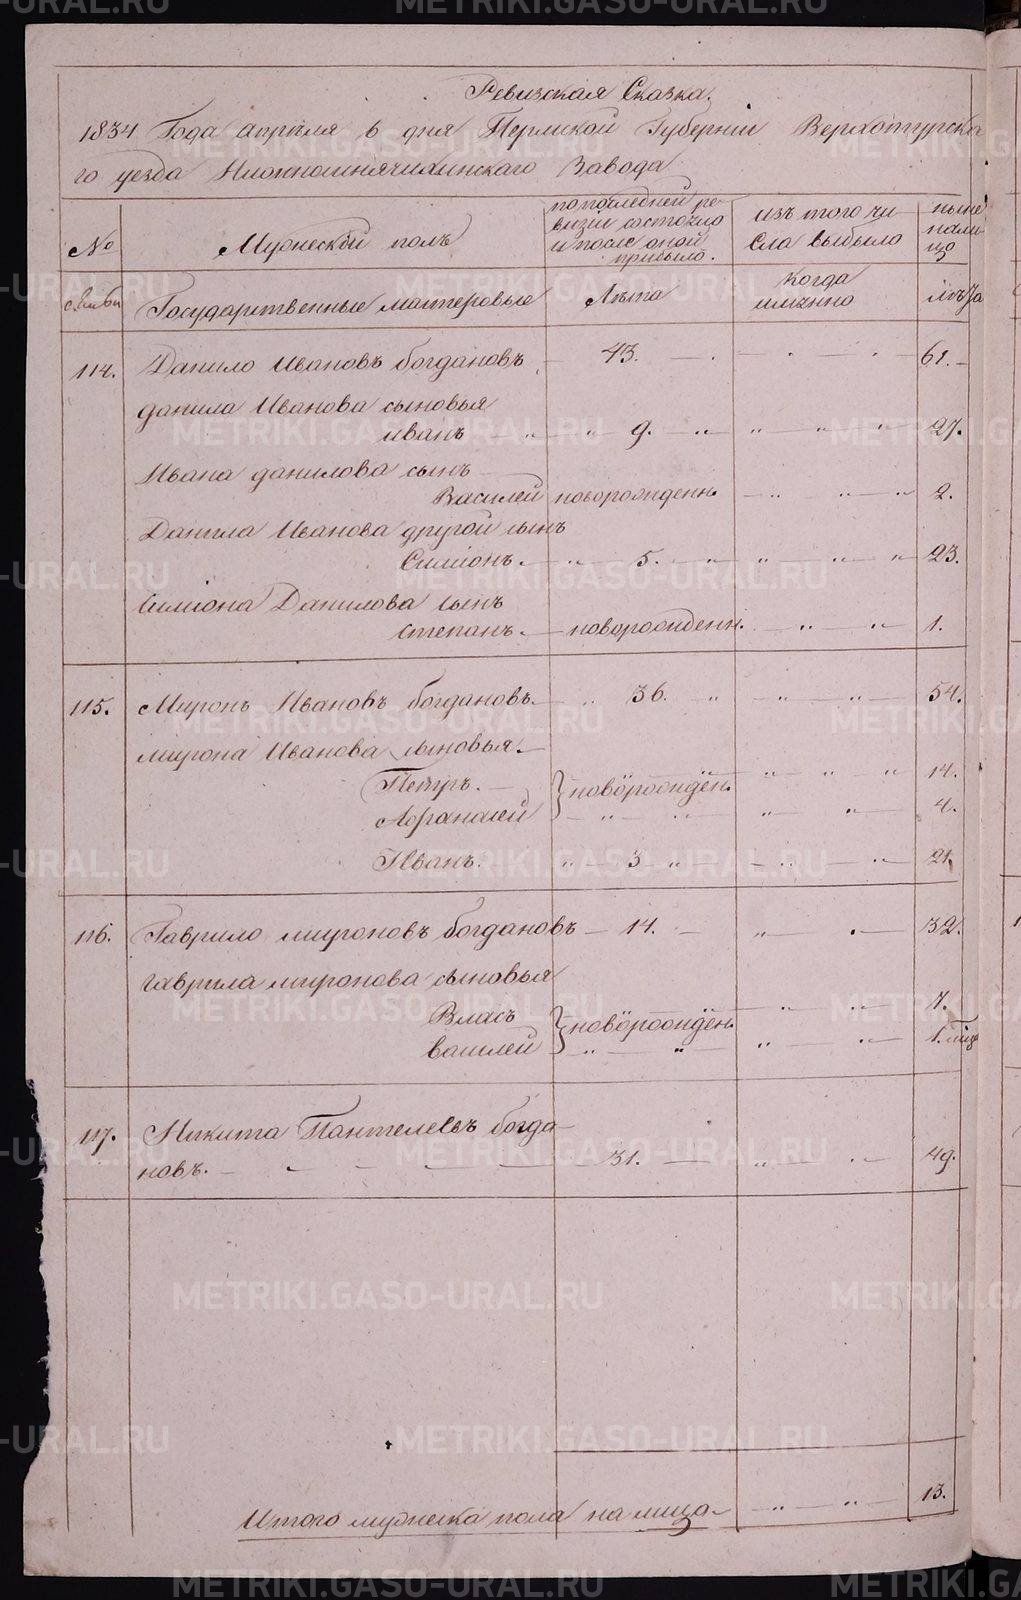 Ревизская Сказка.
1834 Года апреля 6 дня Пермской Губернии Верхотурска
го уезда Нижнесинячихинскаго Завода
№
Мужеский полъ
по последней ре
визiи состояло
и после оной
прибыло.
изъ того чи
сла выбыло
ныне
нали
цо
семьи
Государственные мастеровые
Лѣта
когда
имянно
лѣта
114. Данило Ивановъ богдановъ 43. 61.
данила Иванова сыновья
иванъ 9. 27.
Ивана данилова сынъ
Василей новорожденн. 2.
Данила Иванова другой сынъ
Симiонъ. 5. 23.
Симiона Данилова сынъ
степанъ. новорожденн. 1.
115. Миронъ Ивановъ богдановъ. 36. 54.
мирона Иванова сыновья.
Петръ. новорожден. 14.
Афанасей 4.
Иванъ. 3 21.
116. Гаврило мироновъ богдановъ 14. 32.
гаврила миронова сыновья
Власъ новорожден. 7.
василей 1. мѣс
117. Никита Пантелеевъ богда
новъ. 31. 49.
Итого мужеска пола на лицо 13.
METRIKI.GASO-URAL.RU